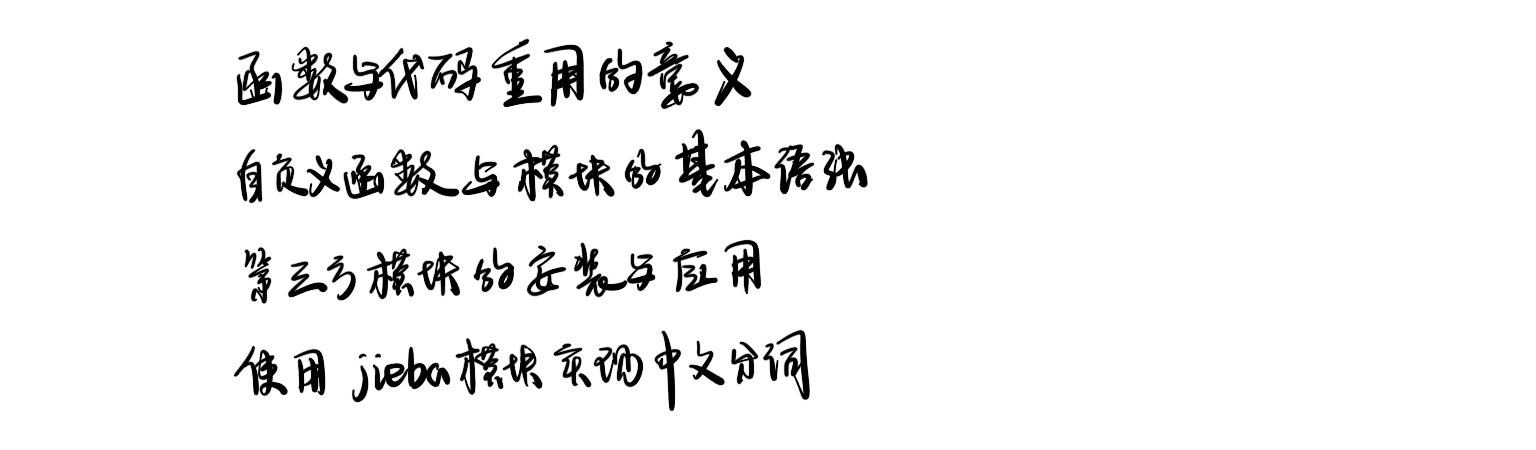 函数与代码重用的意义
自定义函数与模块的基本语法
第三方模块的安装与应用
使用jieba模块实现中文分词